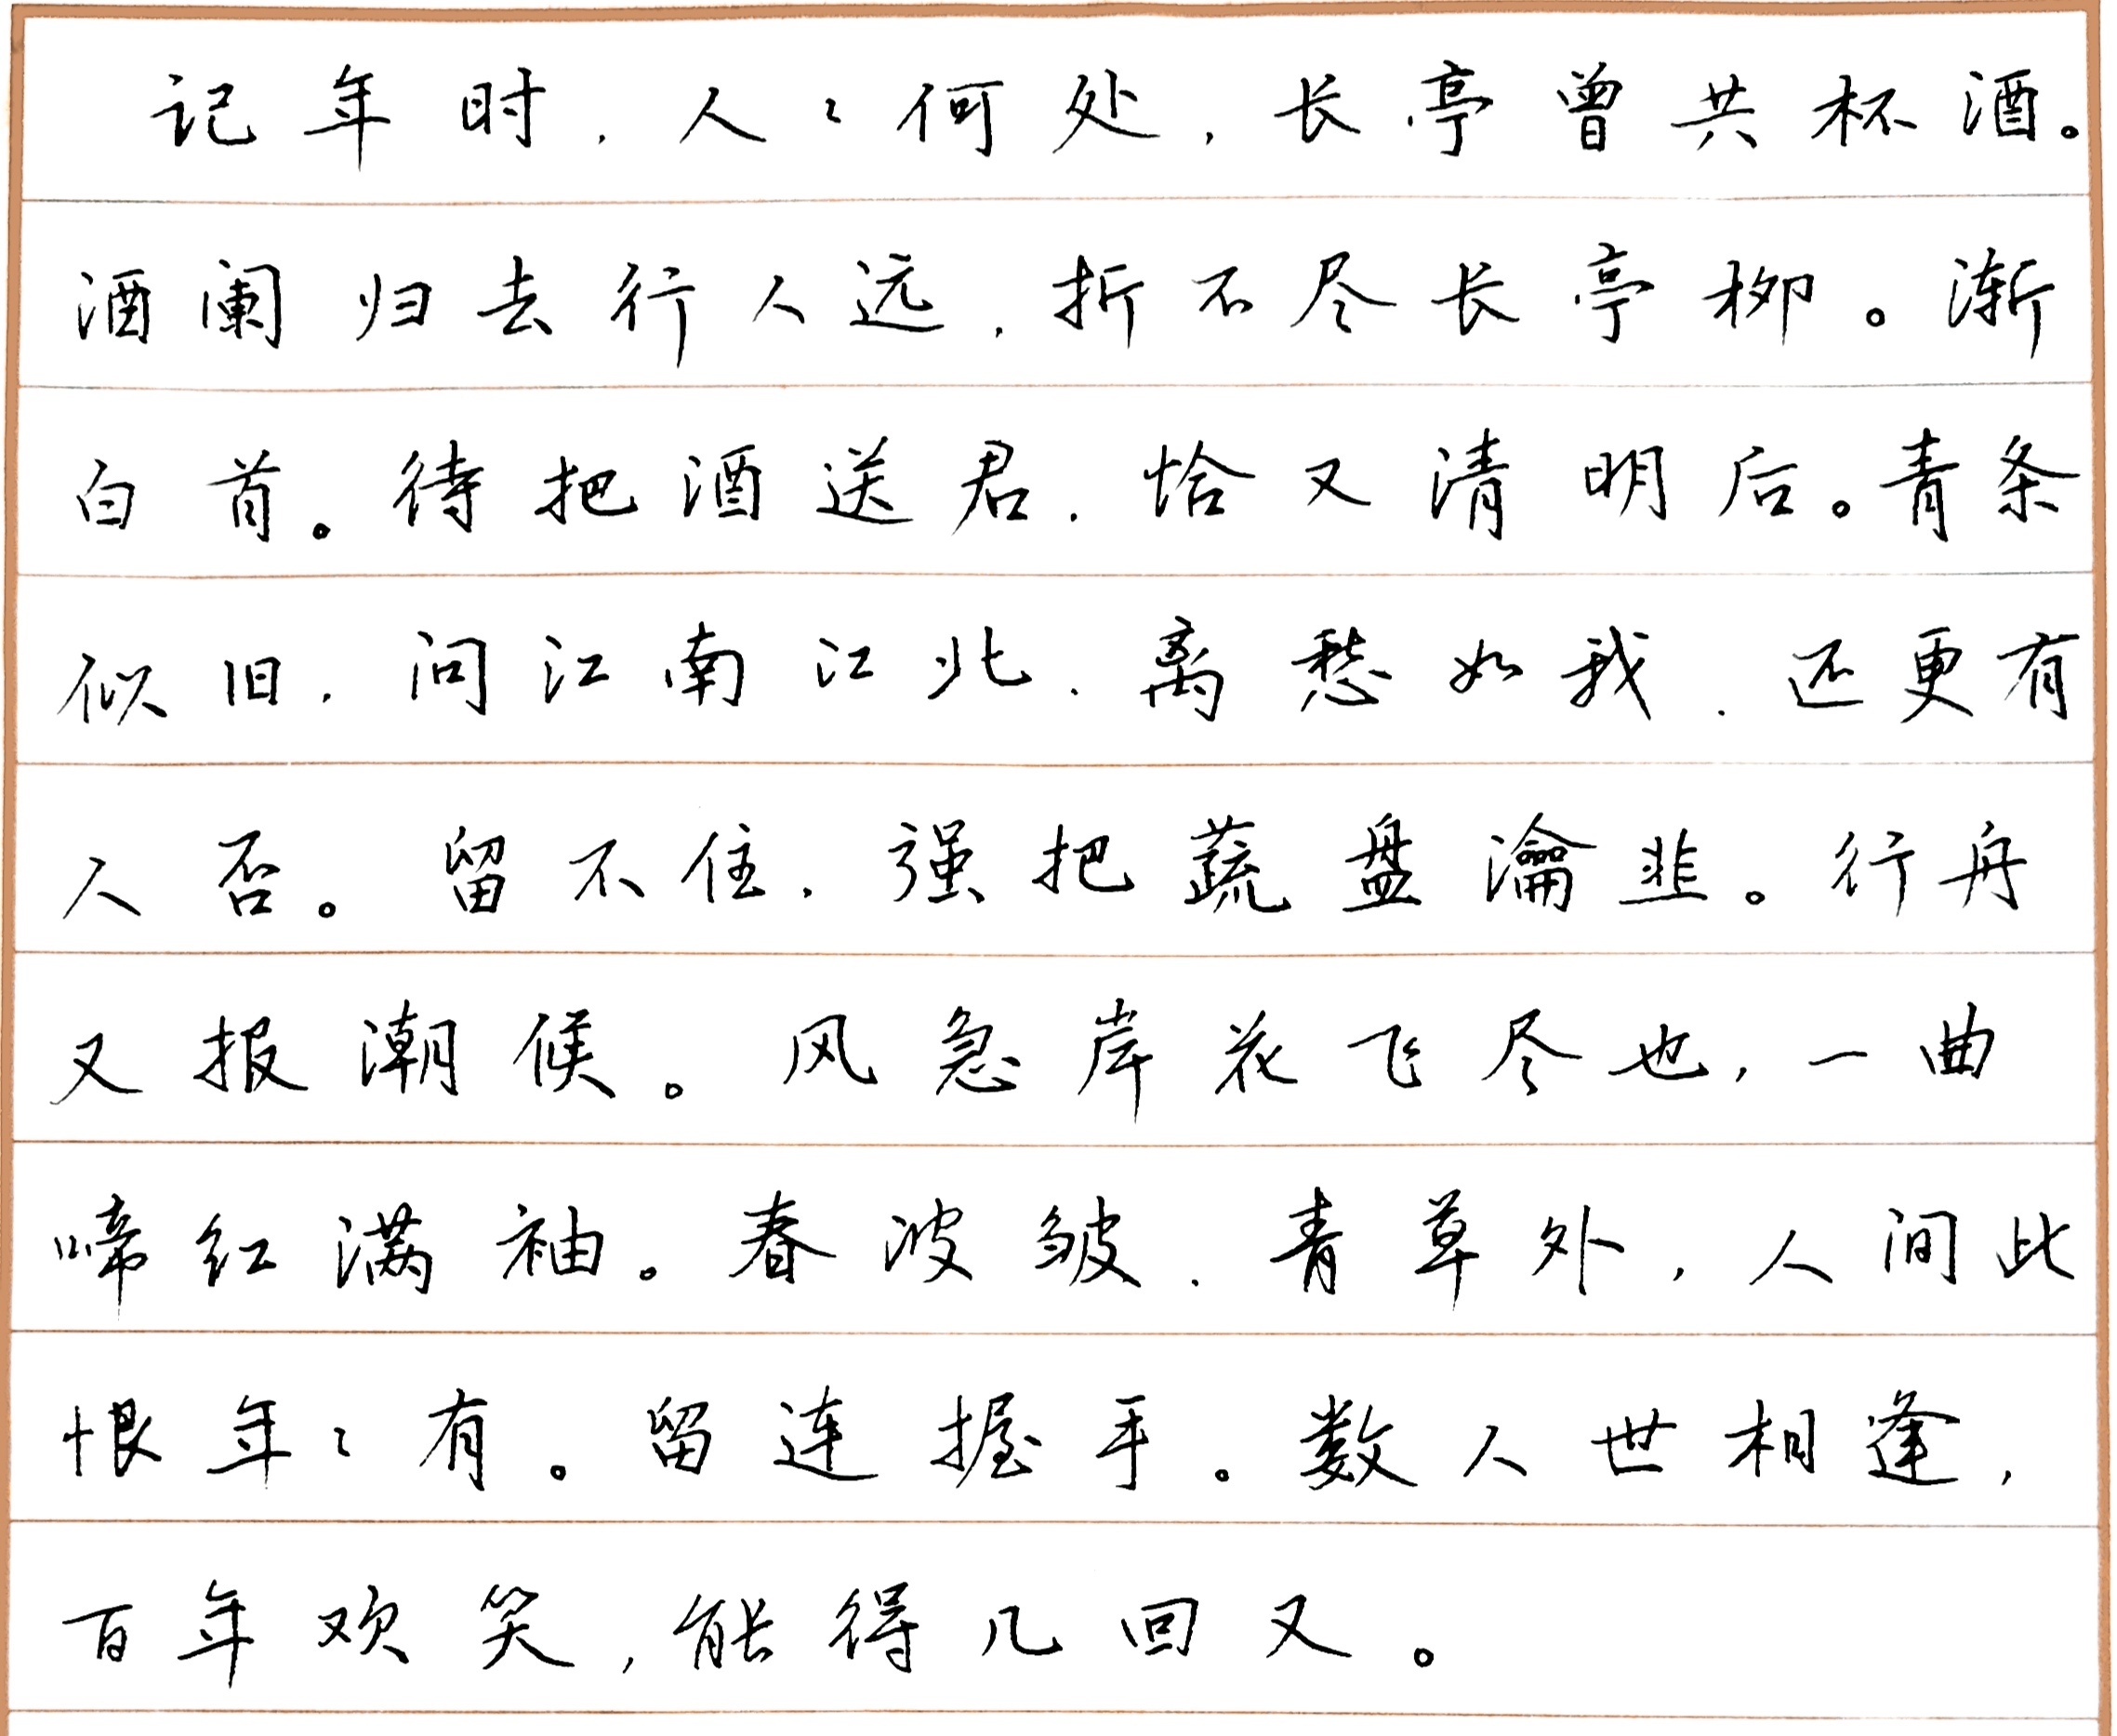 记年时，人々何处，长亭曾共杯酒。
酒阑归去行人远，折不尽长亭柳。渐
白首。待把酒送君，恰又清明后。青条
似旧，问江南江北，离愁如我，还更有
人否。留不住，强把蔬盘瀹韭。行舟
又报潮候。风急岸花飞尽也，一曲
啼红满袖。春波皱，青草外，人间此
恨年々有。留连握手。数人世相逢，
百年欢笑，能得几回又。